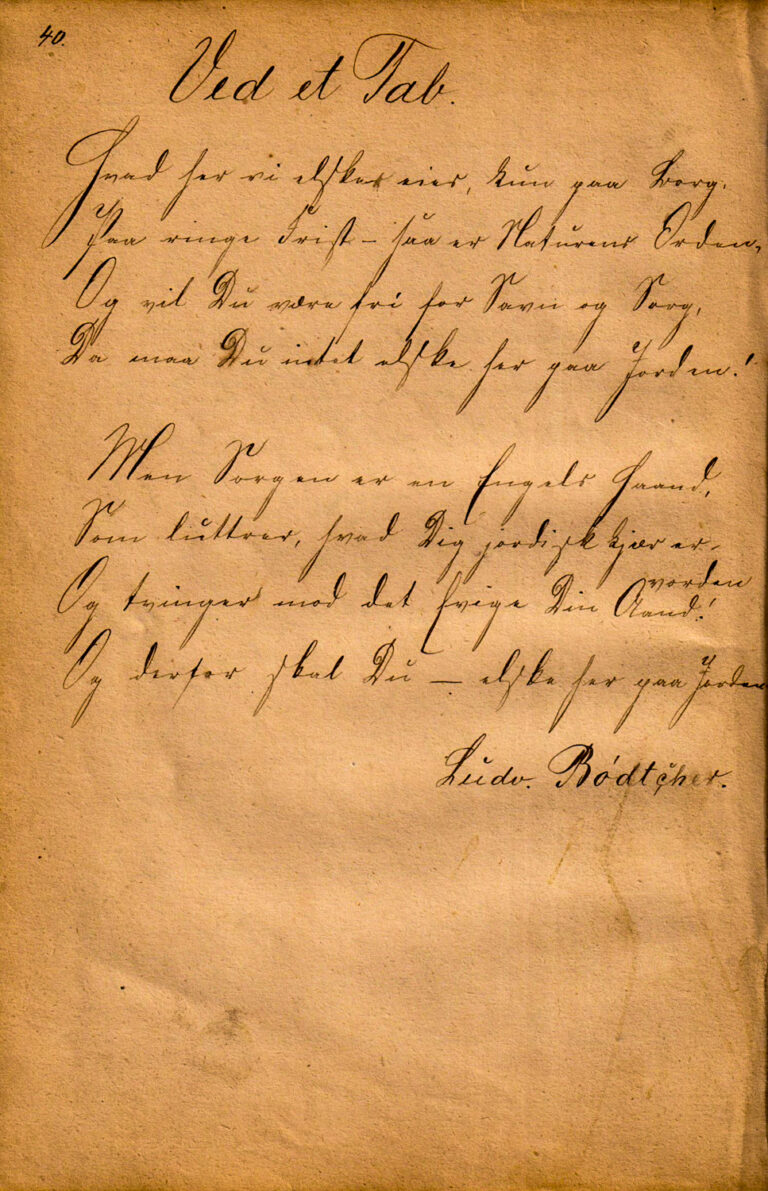 40.
Ved et Tab.
Hvad her vi elske eier, kun paa Borg,
Paa ringe Frist – saa er Naturens Orden,
Og vil Du være fri for Savn og Sorg,
Da maa Du intet elske her paa Jorden!
Men Sorgen er en Engels Haand,
Som luttrer, hvad Dig jordisk kjær er
vorden
Og tvinger mod det Evige Din Aand!
Og derfor skal Du — elske her paa Jorden
Ludv. Bödtcher.